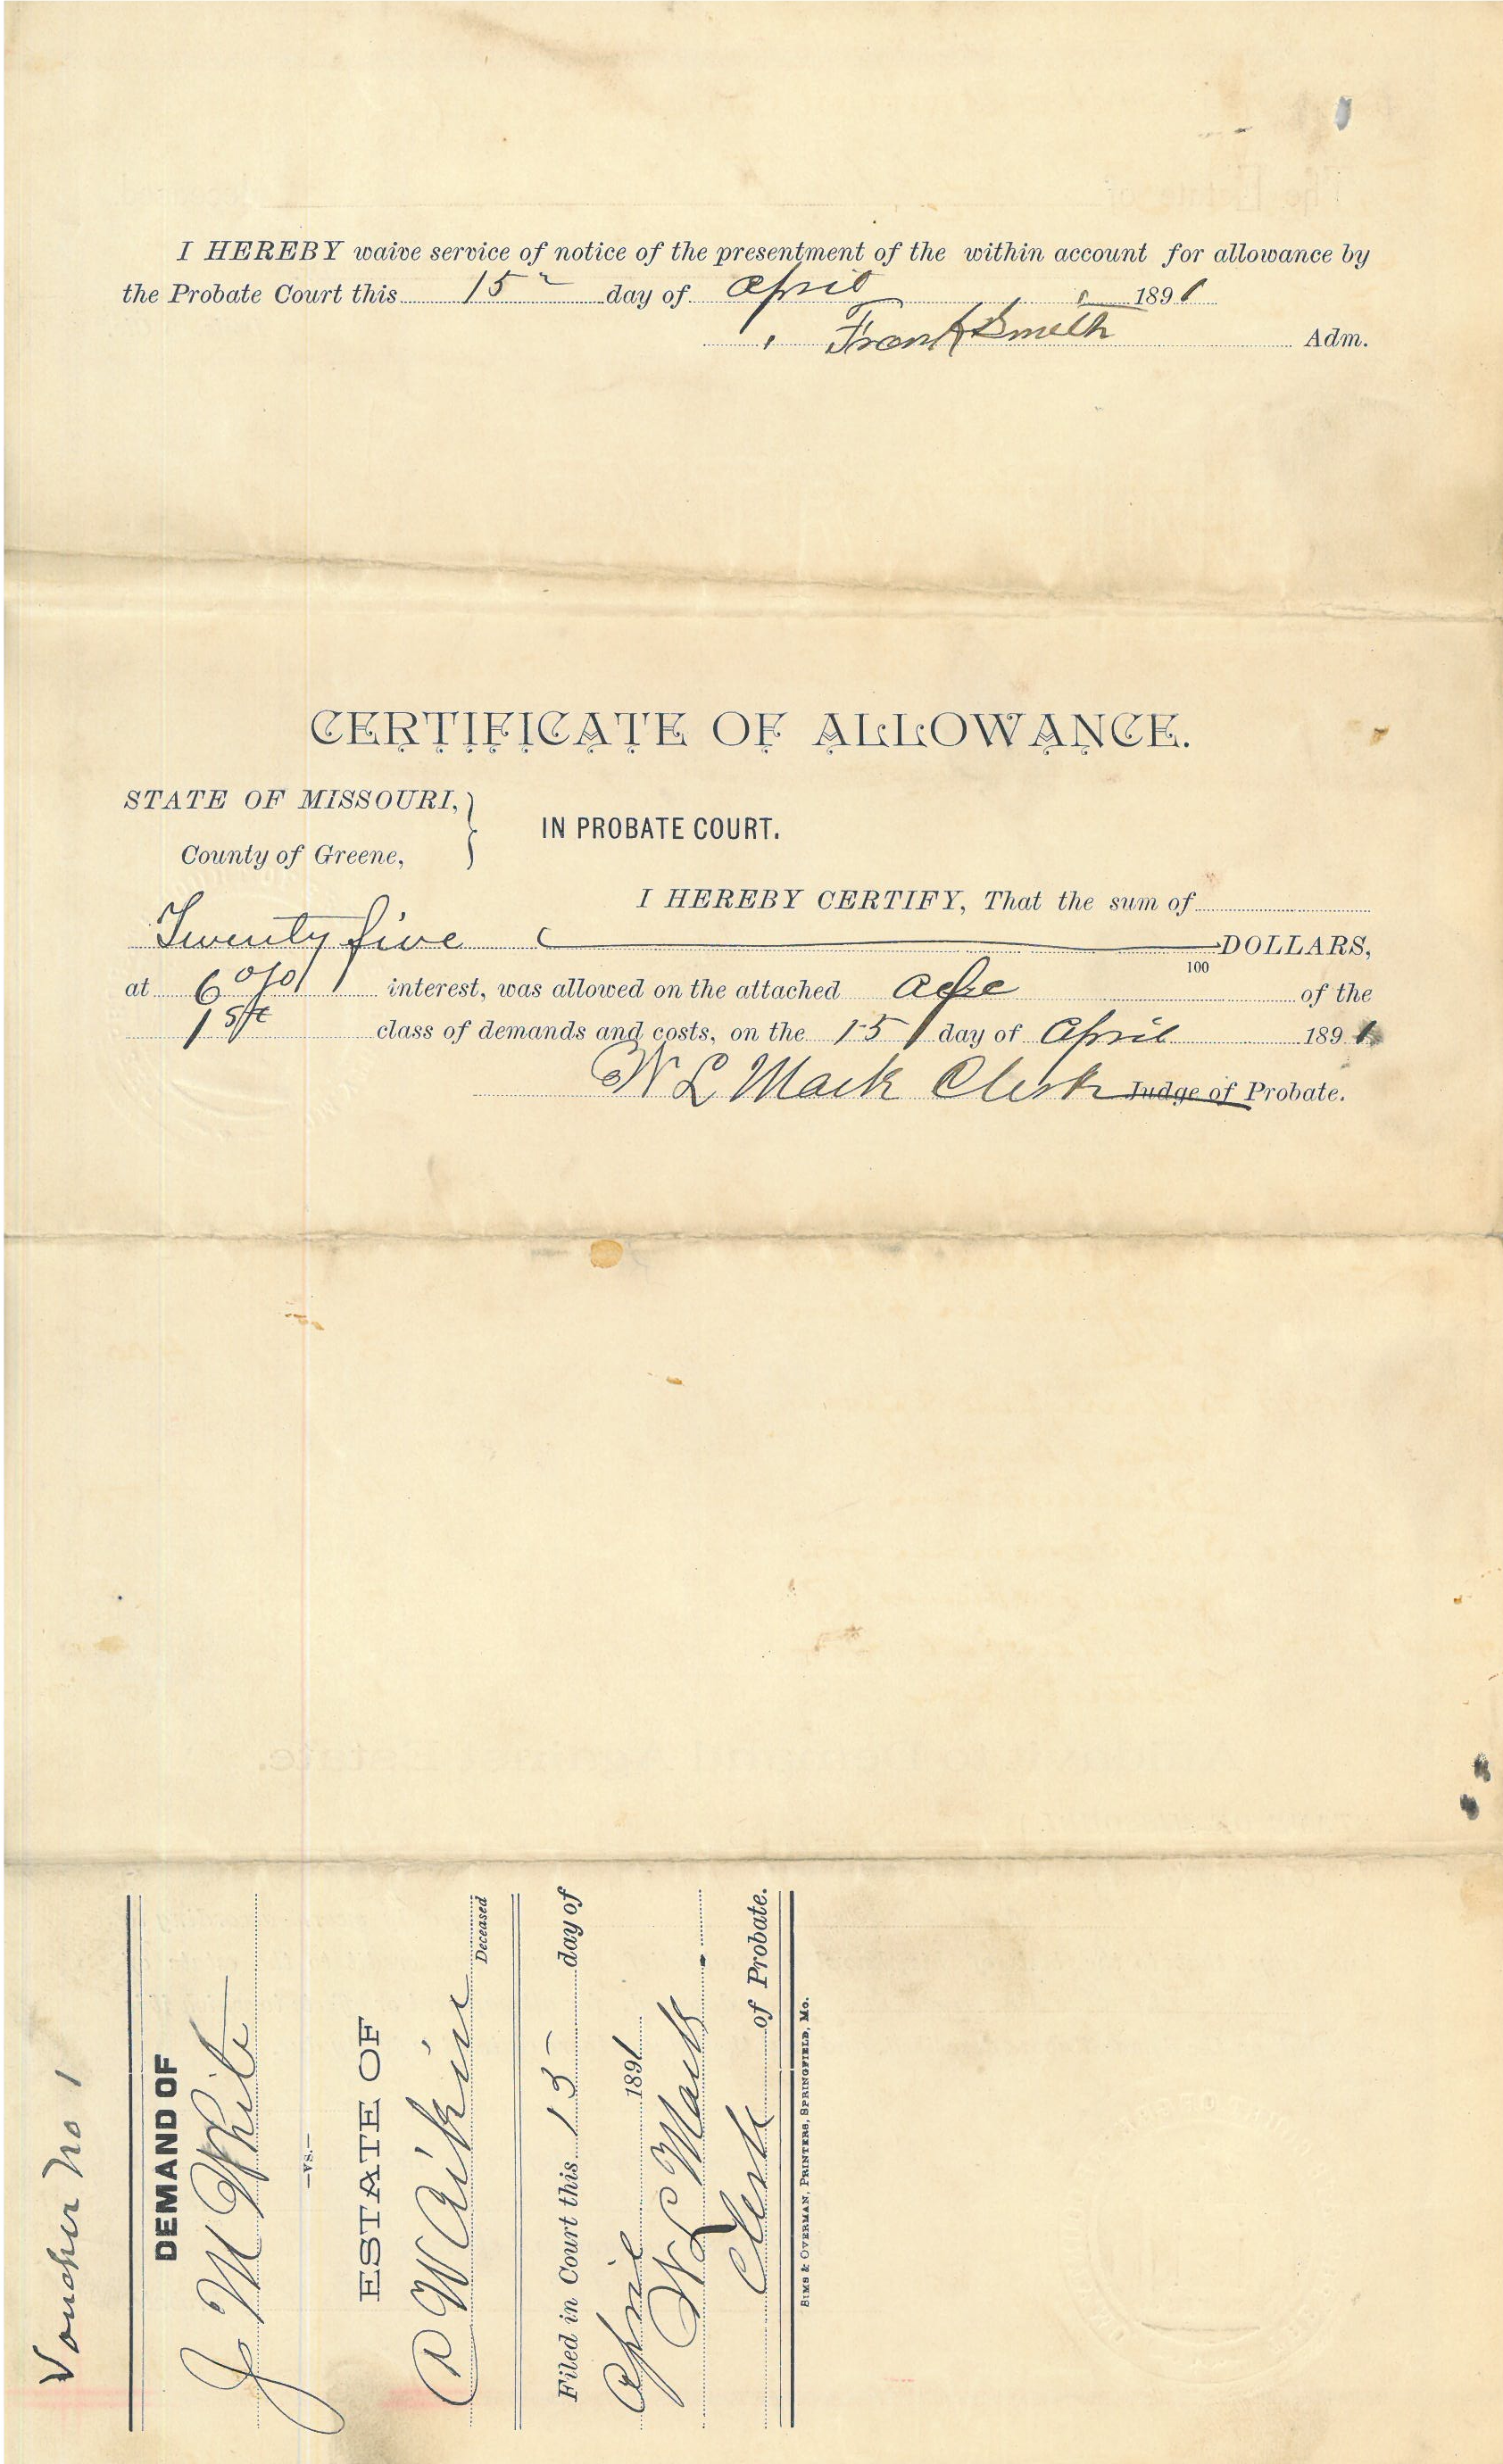 I HEREBY waive service of notice of the presentment of the within account for allowance by
the Probate Court this 15 day of April 1891
Frank Smith Adm.
CERTIFICATE OF ALLOWANCE.
STATE OF MISSOURI,
County of Greene,
IN PROBATE COURT.
I HEREBY CERTIFY, That the sum of
Twenty five DOLLARS,
100
at 6 o/o interest, was allowed on the attached of the
1st class of demands and costs, on the 15 day of April 1891
W L Mack Clerk Judge of Probate.
Voucher No 1
DEMAND OF
J M White
—vs.—
ESTATE OF
W Aikin
Deceased
Filed in Court this 15 day of
April 1891
W L Mack
Clerk of Probate.
SIMS & OVERMAN, PRINTERS, SPRINGFIELD, MO.